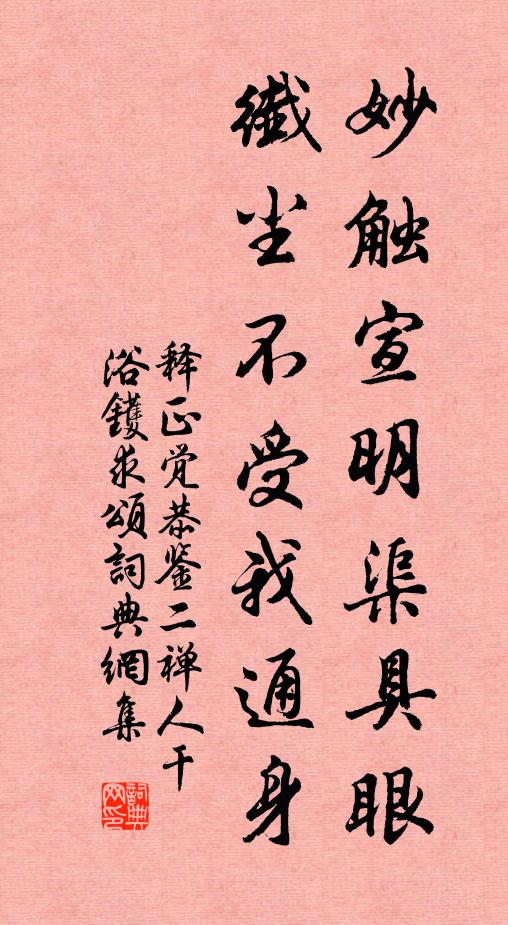 妙触宣明渠具眼
纖尘不受我通身
释正觉恭鉴二禅人干
浴鑊求頌詞典網集
詞典网印